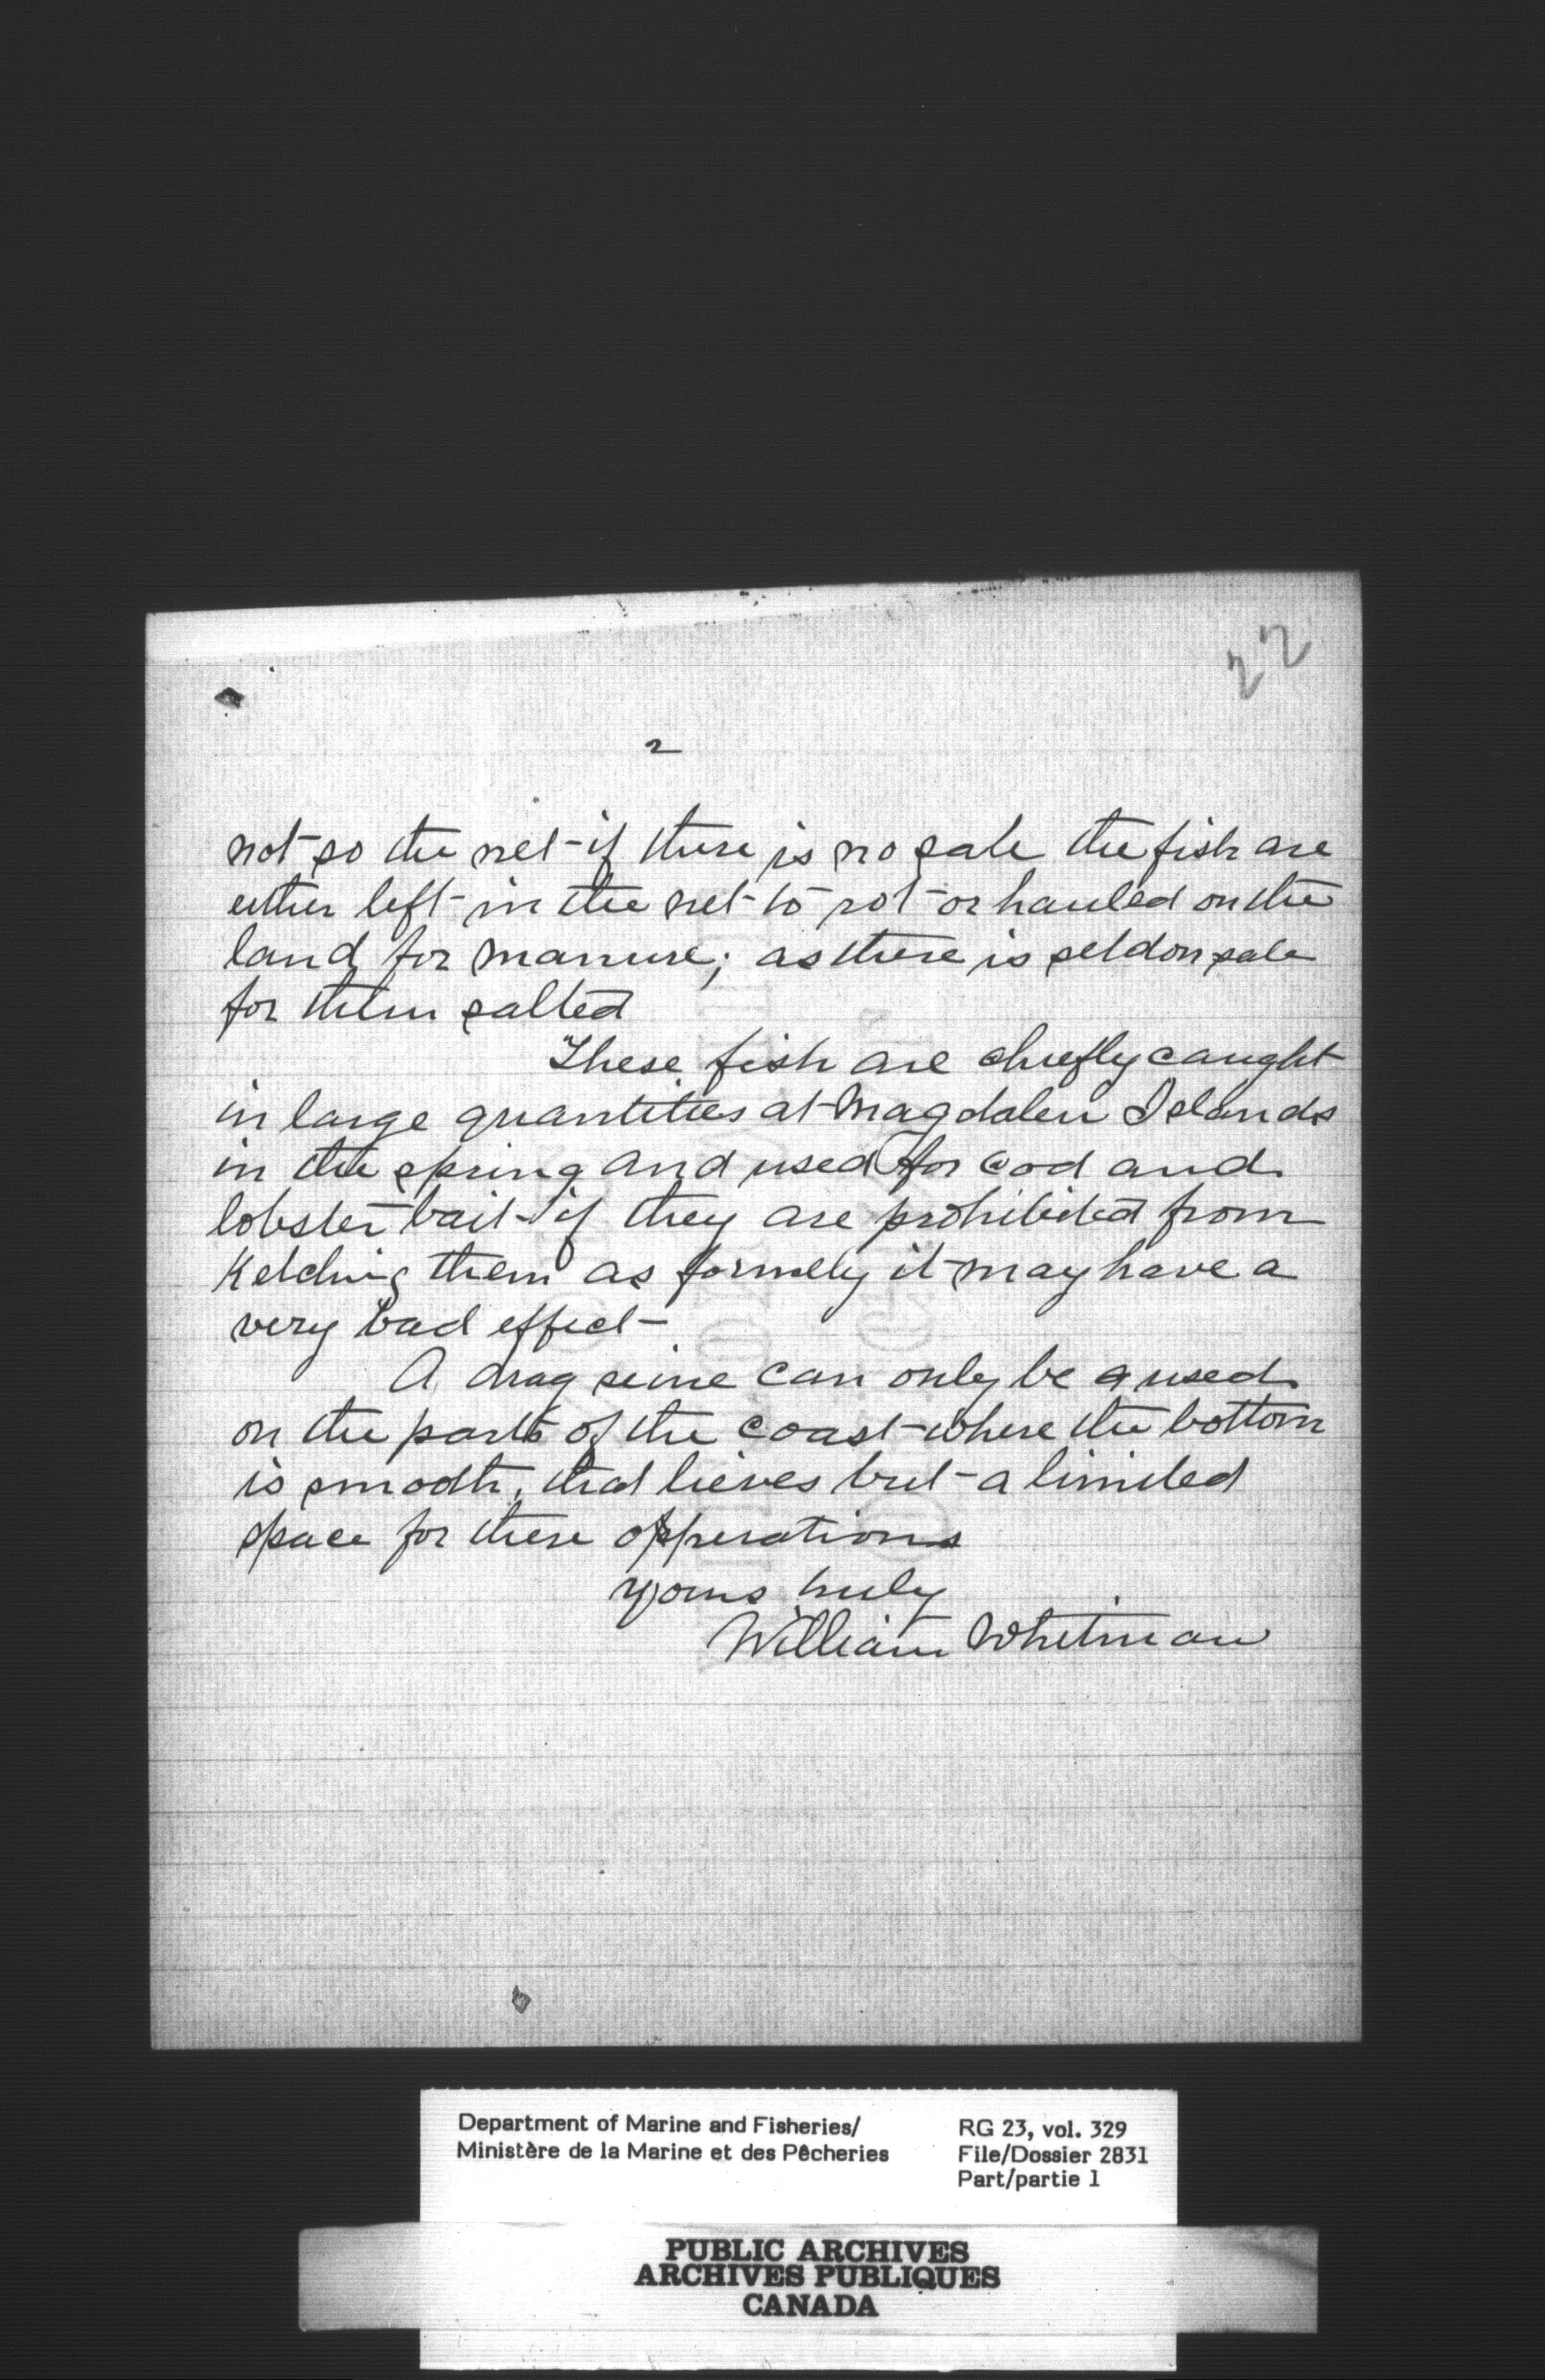 22
2
not so the net - if there is no sale the fish are
either left in the net to rot or hauled on the
land for manure; as there is seldon sale
for them salted
These fish are chiefly caught
in large quantities at Magdalen Islands
in the spring and used for cod and
lobster bait - if they are prohibited from
Ketching them as formely it may have a
very bad effect -
A drag seine can only be used
on the parts of the coast where the bottom
is smooth, that lieves but a limited
space for there opperations
yours truly
William Whitman
Department of Marine and Fisheries/
Ministère de la Marine et des Pêcheries
RG 23, vol. 329
File/Dossier 2831
Part/partie 1
PUBLIC ARCHIVES
ARCHIVES PUBLIQUES
CANADA